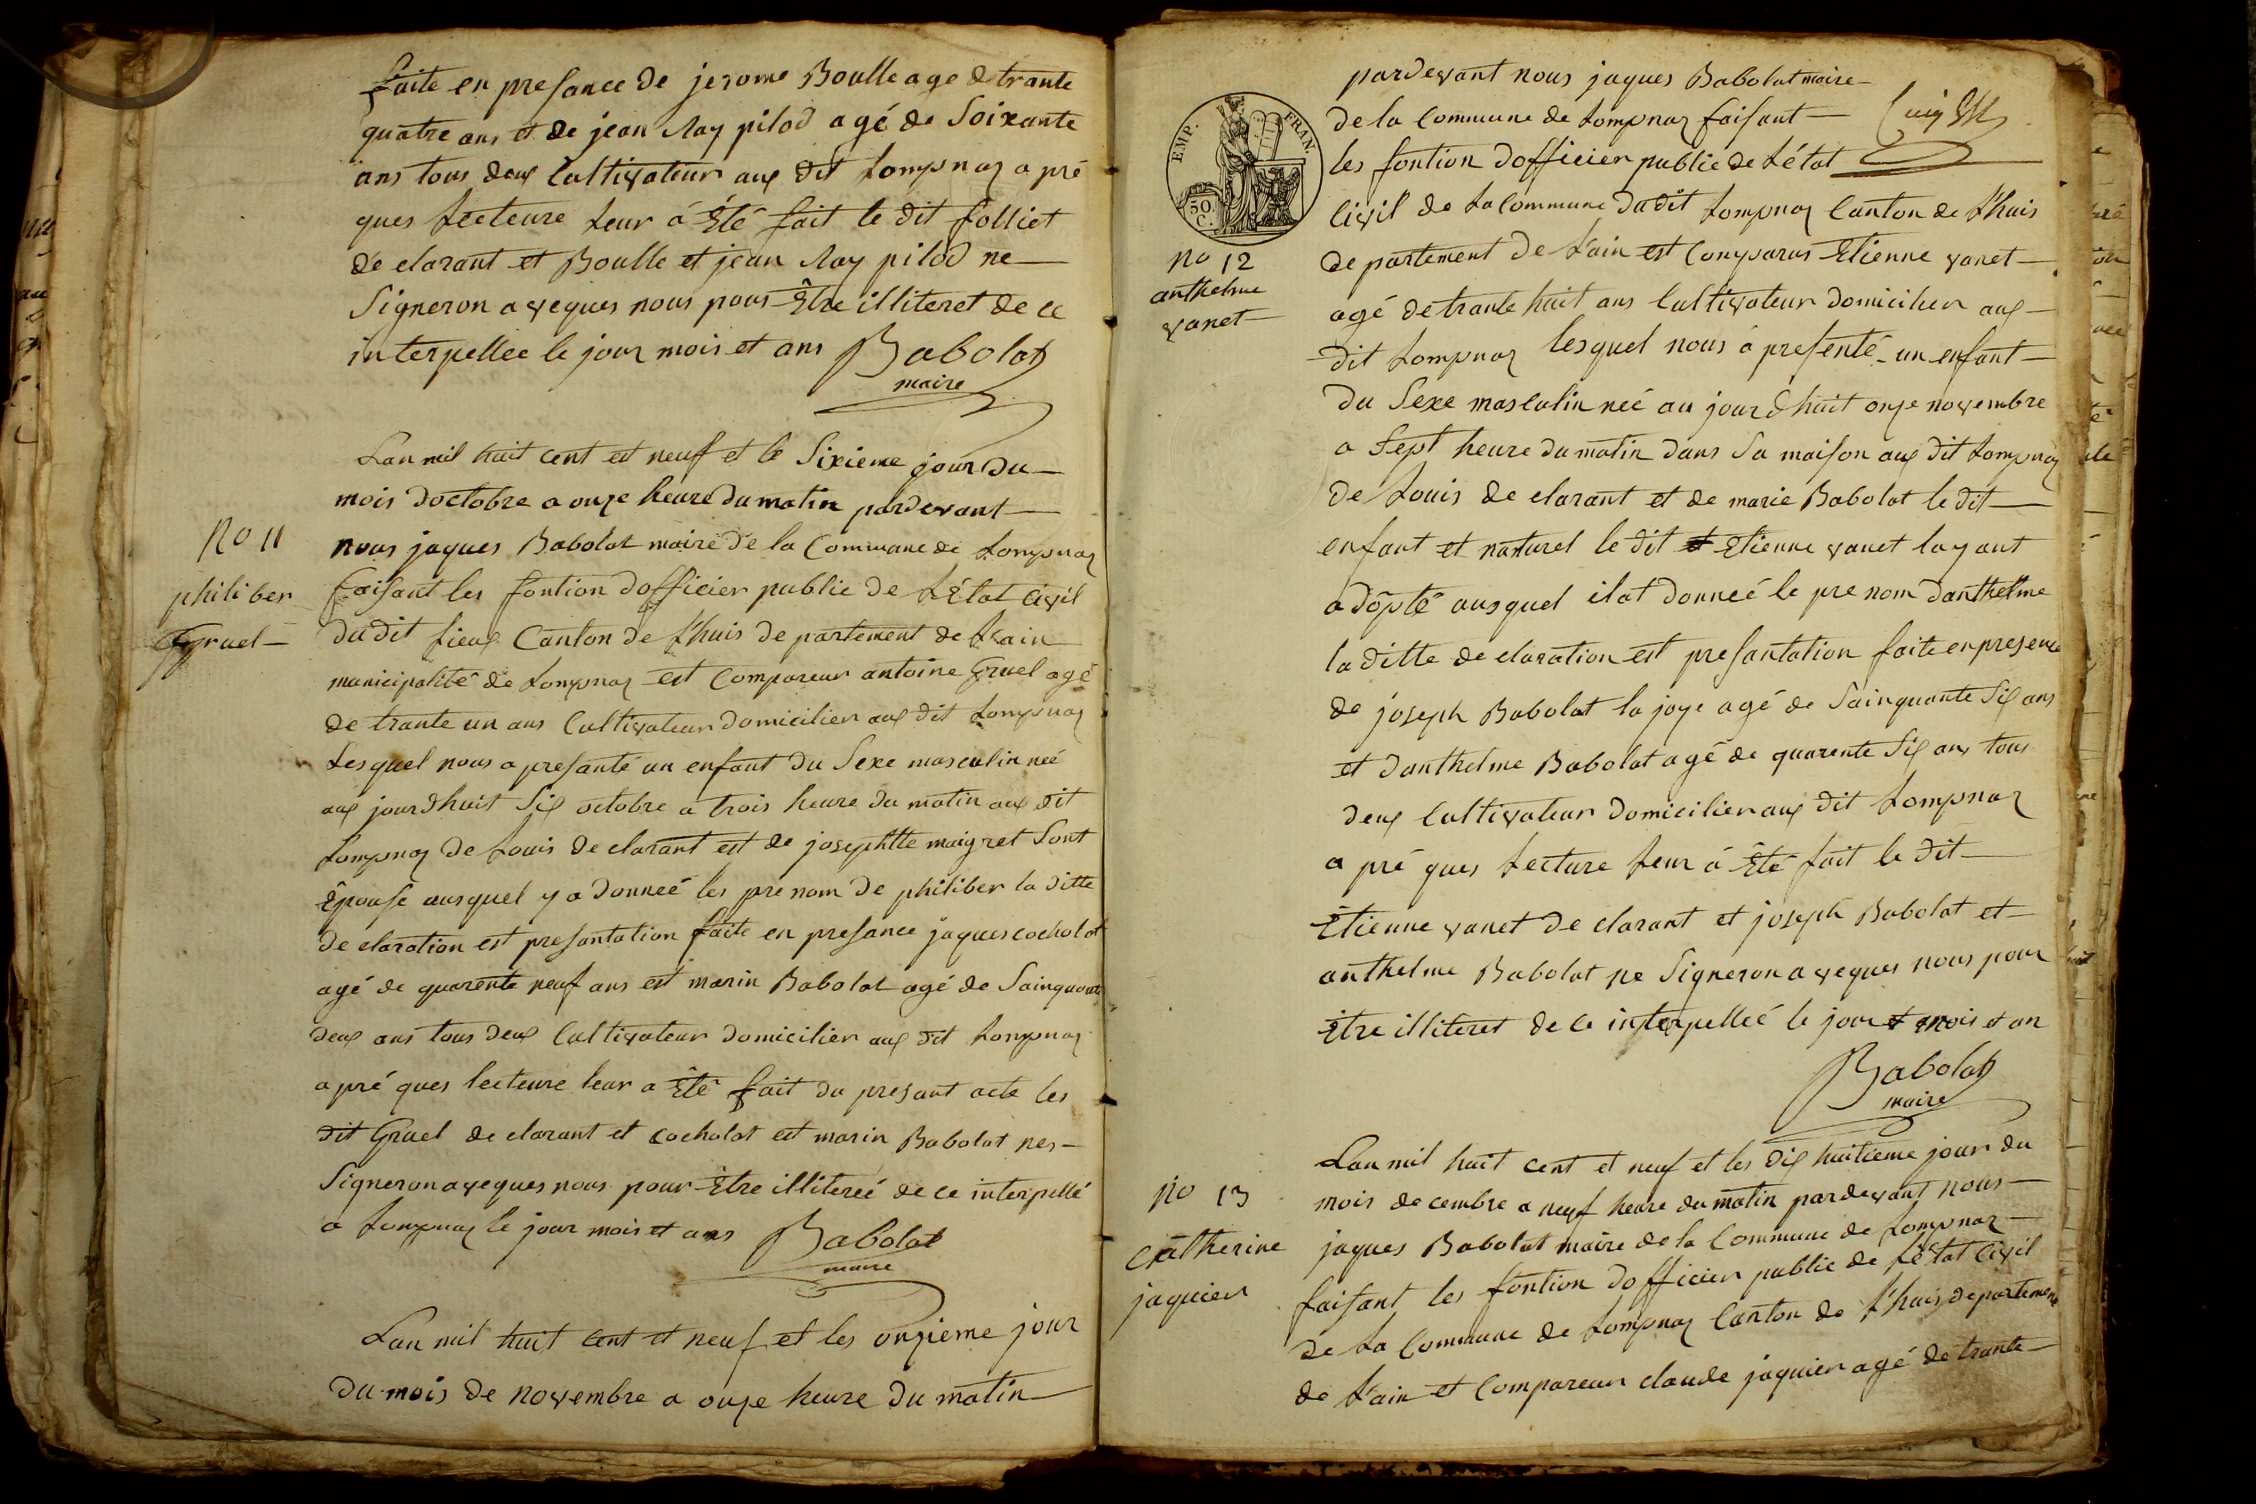 faite en presance de jerome Boulle age de trante
quatre ans et de jean Ray pilod agé de Soixante
ans tous deux Cultivateur aux dit Lompnaz a pré
ques Lecteure Leur á Été fait le dit folliet
de clarant et Boulle et jean Ray pilod ne
Signeron aveques nous pour Être illiteret de ce
interpellee le jour mois et ans Babolat
maire
Lan mil huit cent et neuf et le Sixieme jour du
mois doctobre a onze heure du matin pardevant
No 11
nous jaques Babolat maire de la Commune de Lompnaz
philiber
faisant les fontion dofficier public de LÉtat Civil
Gruel
du dit lieux Canton de Lhuis de partement de Lain
municipalité de Lompnaz est Compareur antoine Gruel agé
de trante un ans Cultivateur domicilier aux dit Lompnaz
Lesquel nous a presanté un enfant du Sexe masculin neé
aux jourdhuit Six octobre a trois heure du matin aux dit
Lompnaz de Louis de clarant est de josephtte maigret Sont
Épouse ausquel y a donneé les pre nom de philiber la ditte
de claration est presantation faite en presance jaques cocholat
agé de quarente neuf ans est marin Babolat agé de Sainquante
deux ans tous deux Cultivateur domicilier aux dit Lompnaz
a pré ques lecteure leur a Été fait du presant acte les
dit Gruel de clarant et cocholat est marin Babolat nes
Signeron aveques nous pour Être illitereé de ce interpellé
a Lompnaz le jour mois et ans Babolat
maire
Lan mil huit cent et neuf et les onzieme jour
du mois de novembre a onze heure du matin
pardevant nous jaques Babolat maire
de la Commune de Lompnaz faisant
EMP. FRAN.
50 C.
les fontion dofficier public de Létat
Civil de La Commune du dit Lompnaz Canton de Lhuis
No 12
de partement de Lain est Comparus Etienne vanet
anthelme
agé de trante huit ans Cultivateur domicilier aux
vanet
dit Lompnaz lesquel nous á presenté un enfant
du Sexe masculin neé au jourdhuit onze novembre
a Sept heure du matin dans Sa maison aux dit Lompnaz
de Louis de clarant et de marie Babolat le dit
enfant et naturel le dit et Etienne vanet layant
adopté ausquel ilat donneé le pre nom danthelme
la ditte de claration est presantation faite en presence
de joseph Babolat la joye agé de Sainquante Six ans
et danthelme Babolat agé de quarente Six ans tous
deux Cultivateur domicilier aux dit Lompnaz
a pré ques Lecture Leur á Été fait le dit
Étienne vanet de clarant et joseph Babolat et
anthelme Babolat ne Signeron aveques nous pour
Être illiteret de ce interpelleé le jour et mois et an
Babolat
maire
Lan mil huit cent et neuf et les dix huitieme jour du
No 13
mois de cembre a neuf heure du matin pardevant nous
Catherine
jaques Babolat maire de la Commune de Lompnaz
jaquier
faisant les fontion dofficier public de Létat Civil
de La Commune de Lompnaz Canton de Lhuis departement
de Lain et Compareur claude jaquier agé de trante